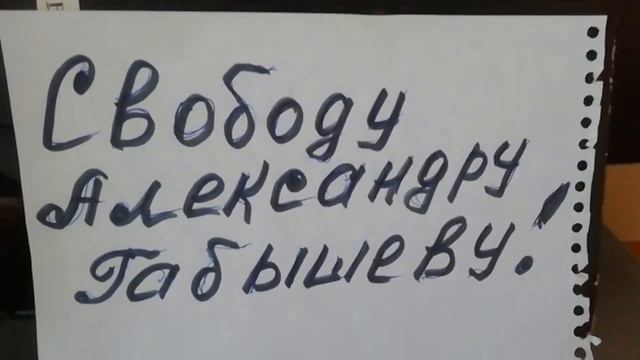 Свободу
Александру
Габышеву!